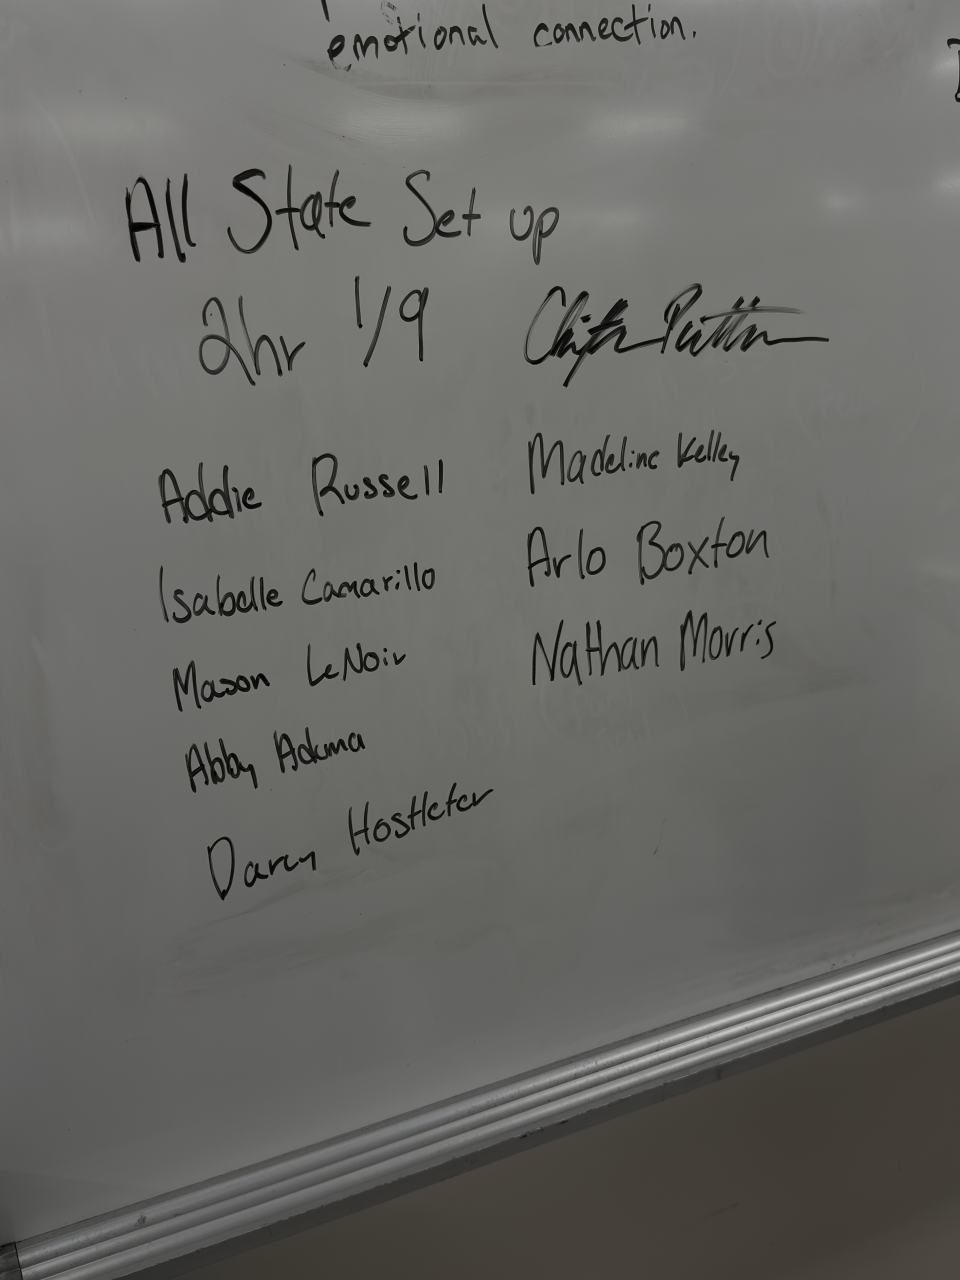 emotional connection.
All State Set up
2hr 1/9
Addie Russell
Isabelle Camarillo
Mason LeNoir
Abby
Darcy Hostleter
Madeline Kelley
Arlo Boxton
Nathan Morris